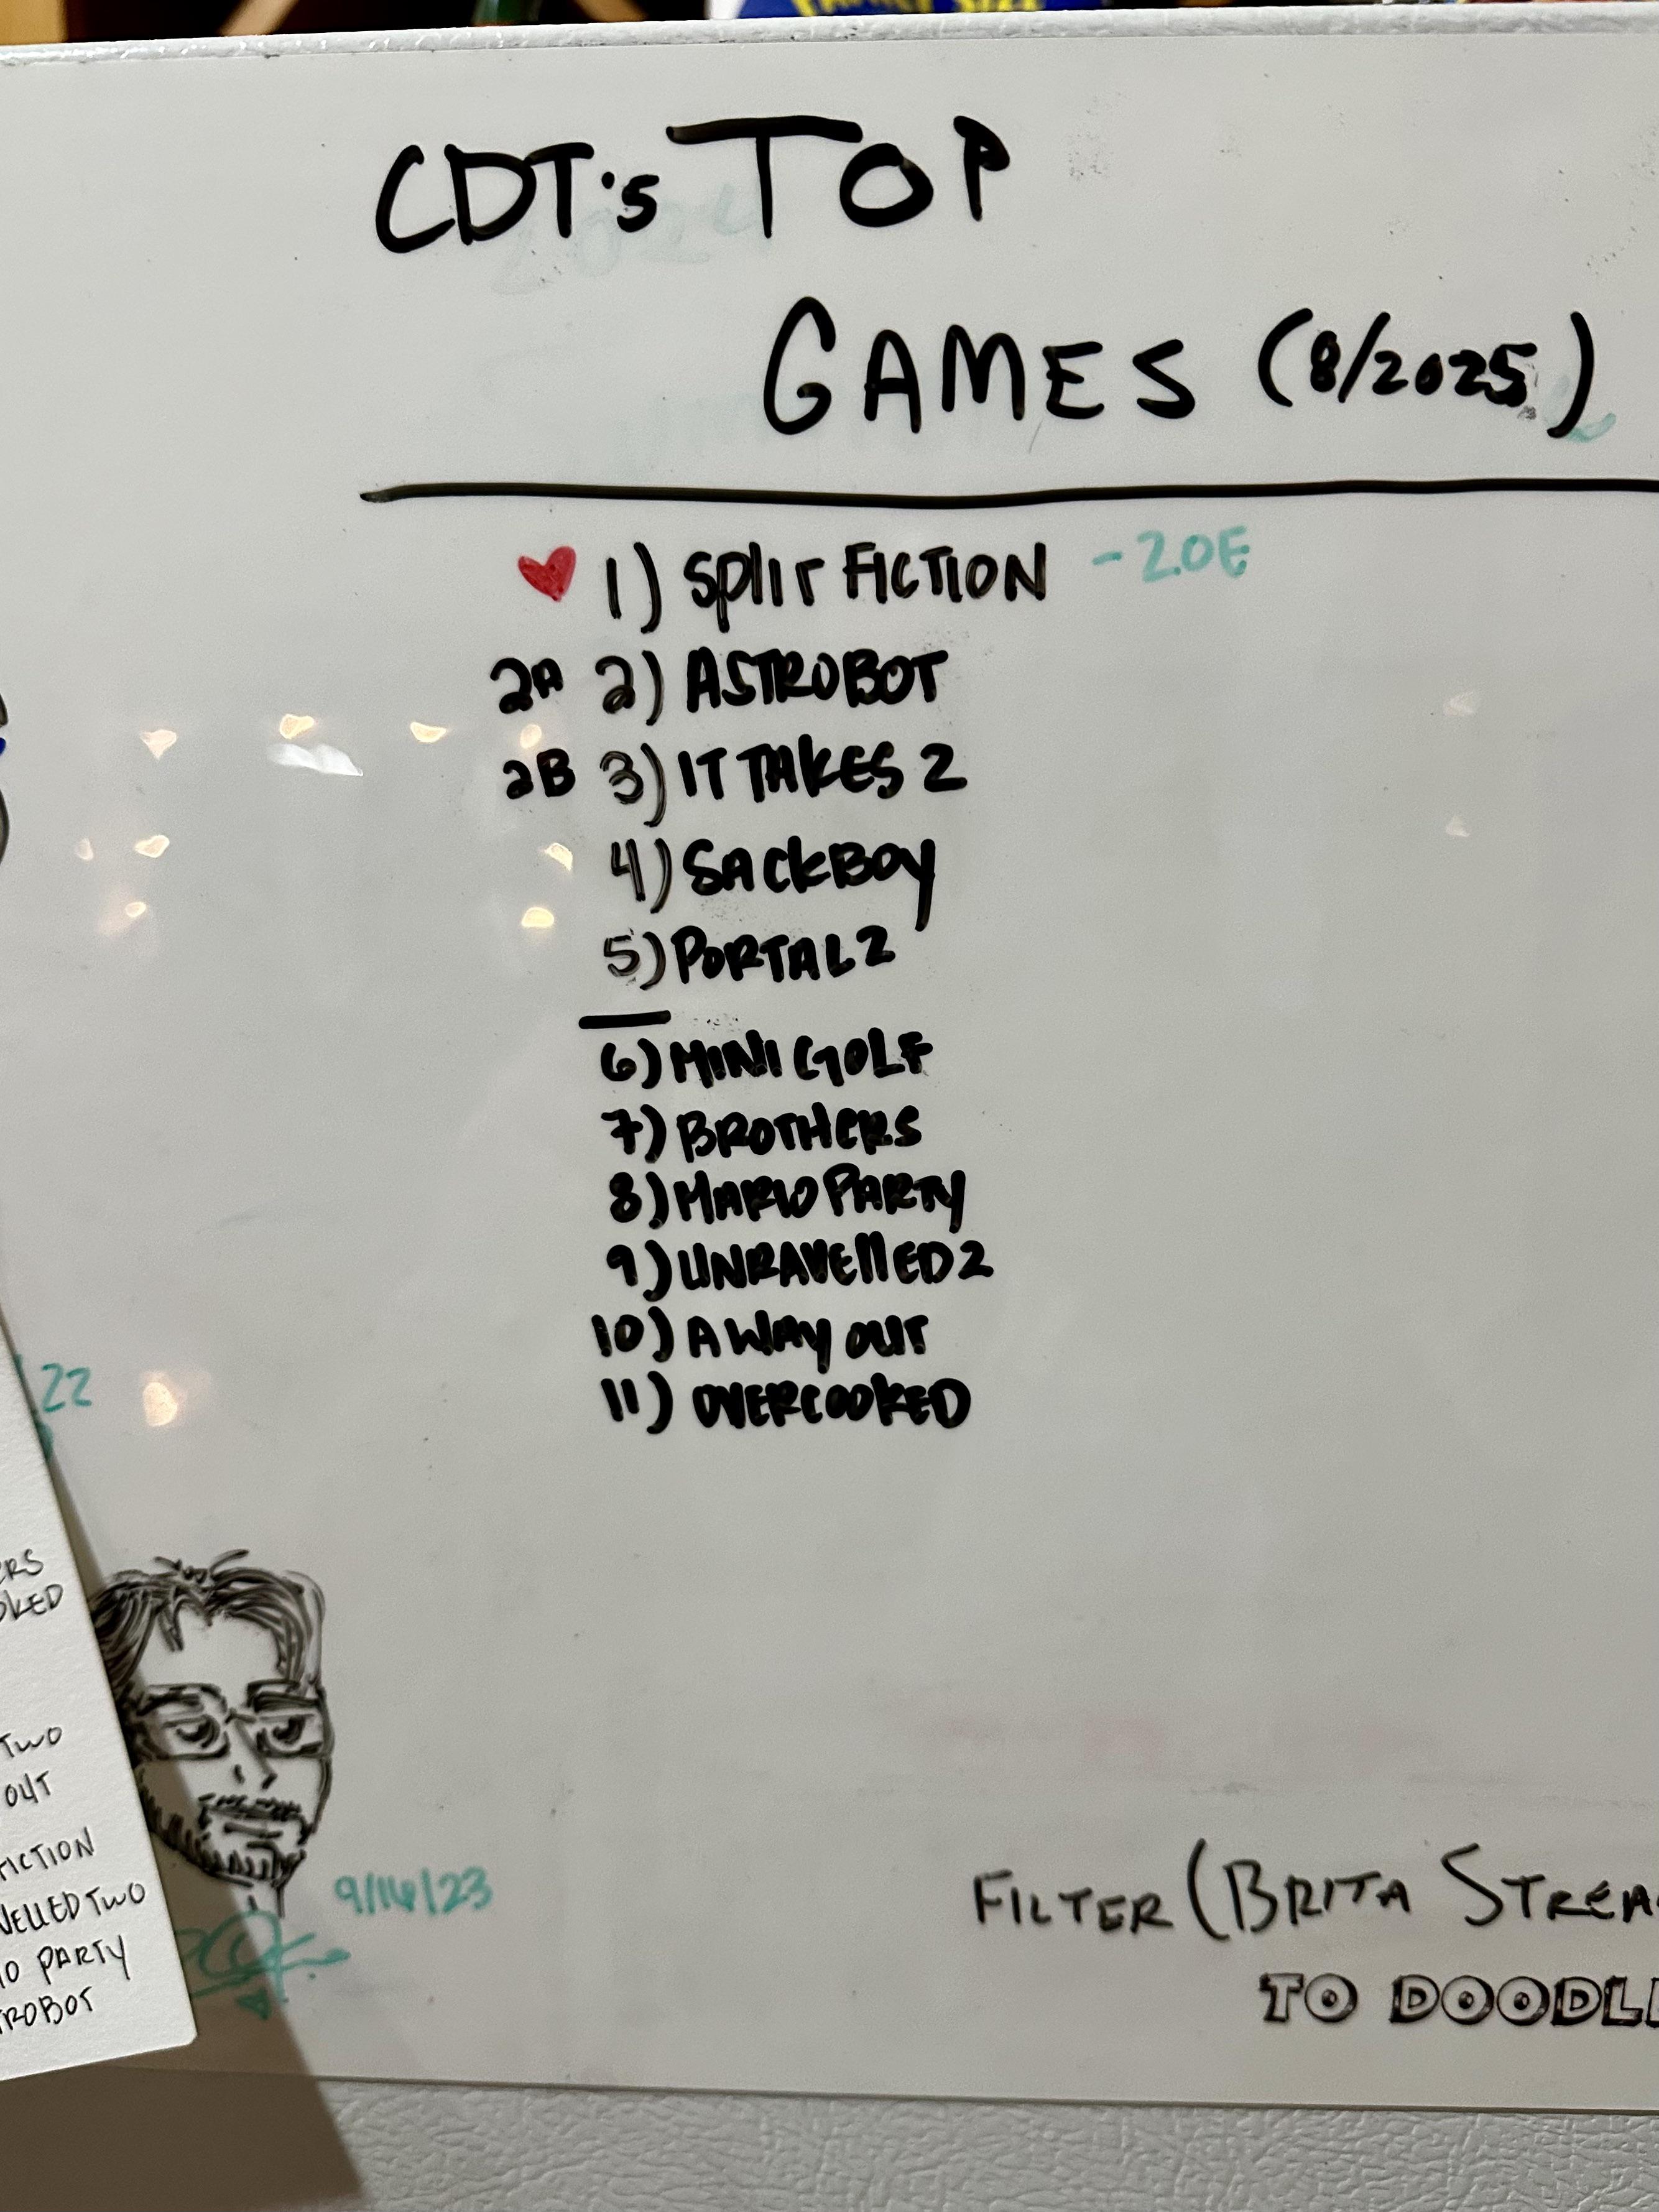 CDT's TOP
GAMES (8/2025)
1) SPLIT FICTION - ZOE
2A 2) ASTROBOT
2B 3) IT TAKES 2
4) SACKBOY
5) PORTAL 2
6) MINI GOLF
7) BROTHERS
8) MARIO PARTY
9) UNRAVELLED 2
10) A WAY OUT
11) OVERCOOKED
22
TWO
OUT
FICTION
TWO
PARTY
9/16/23
FILTER (BRITA
TO